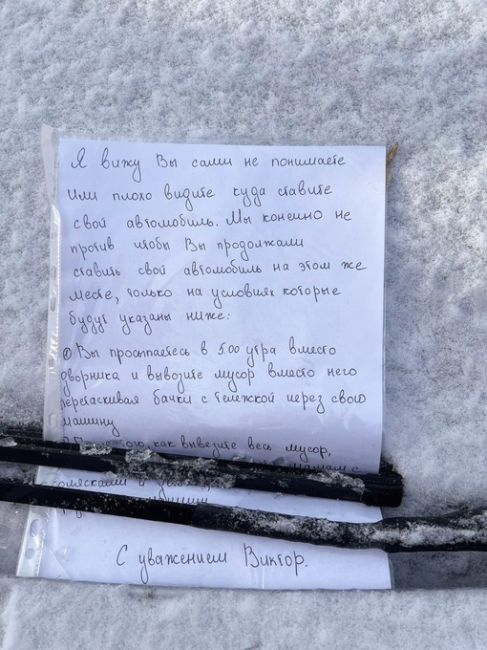 Я вижу Вы сами не понимаете
или плохо видите куда ставите
свой автомобиль. Мы конечно не
против чтобы Вы продолжали
ставить свой автомобиль на этом же
месте, только на условиях которые
будут указаны ниже:
① Вы просыпаетесь в 5:00 утра вместо
дворника и вывозите мусор вместо него
перетаскивая бачки с тележкой через свою
машину
как вывезите весь мусор,
колясками и
С уважением Виктор.